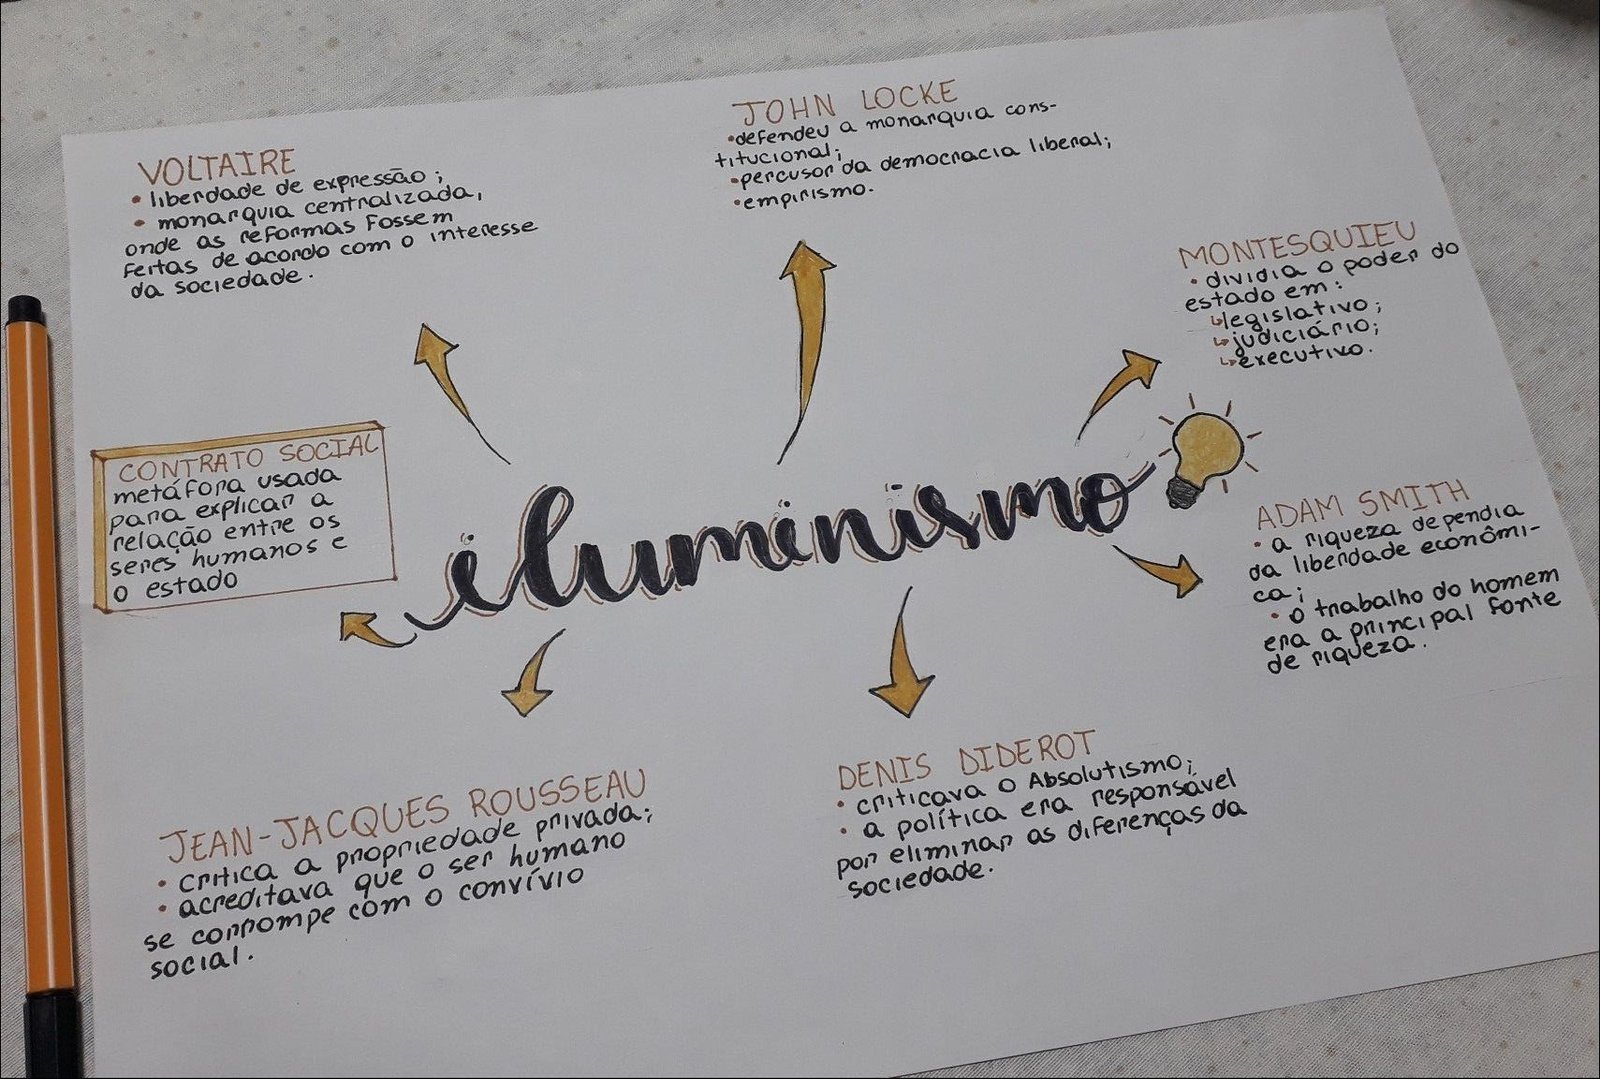 VOLTAIRE
• liberdade de expressão;
• monarquia centralizada,
onde as reformas fossem
feitas de acordo com o interesse
da sociedade.
JOHN LOCKE
• defendeu a monarquia cons-
titucional;
• percusor da democracia liberal;
• empirismo.
MONTESQUIEU
• dividia o poder do
estado em:
↳ legislativo;
↳ judiciário;
↳ executivo.
CONTRATO SOCIAL
metáfora usada
para explicar a
relação entre os
seres humanos e
o estado
iluminismo
ADAM SMITH
• a riqueza dependia
da liberdade econômi-
ca;
• o trabalho do homem
era a principal fonte
de riqueza.
JEAN-JACQUES ROUSSEAU
• critica a propriedade privada;
• acreditava que o ser humano
se corrompe com o convívio
social.
DENIS DIDEROT
• criticava o Absolutismo;
• a política era responsável
por eliminar as diferenças da
sociedade.